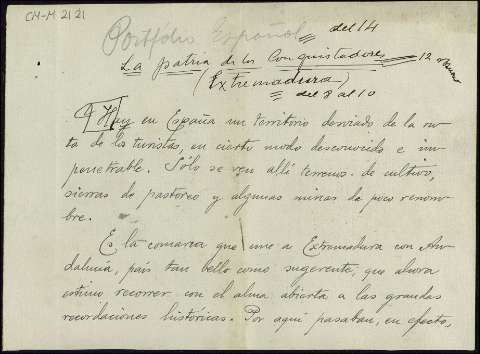 CM-M 2121
Portfolio Español
del 14
La patria de los Conquistadores 12
(Extremadura)
del 8 al 10
Hay en España un territorio desviado de la ru-
ta de los turistas, en cierto modo desconocido e im-
penetrable. Sólo se ven allí terrenos de cultivo,
sierras de pastoreo y algunas minas de poco renom-
bre.
Es la comarca que une a Extremadura con An-
dalucía, país tan bello como sugerente, que ahora
estimo recorrer con el alma abierta a las grandes
recordaciones históricas. Por aquí pasaban, en efecto,